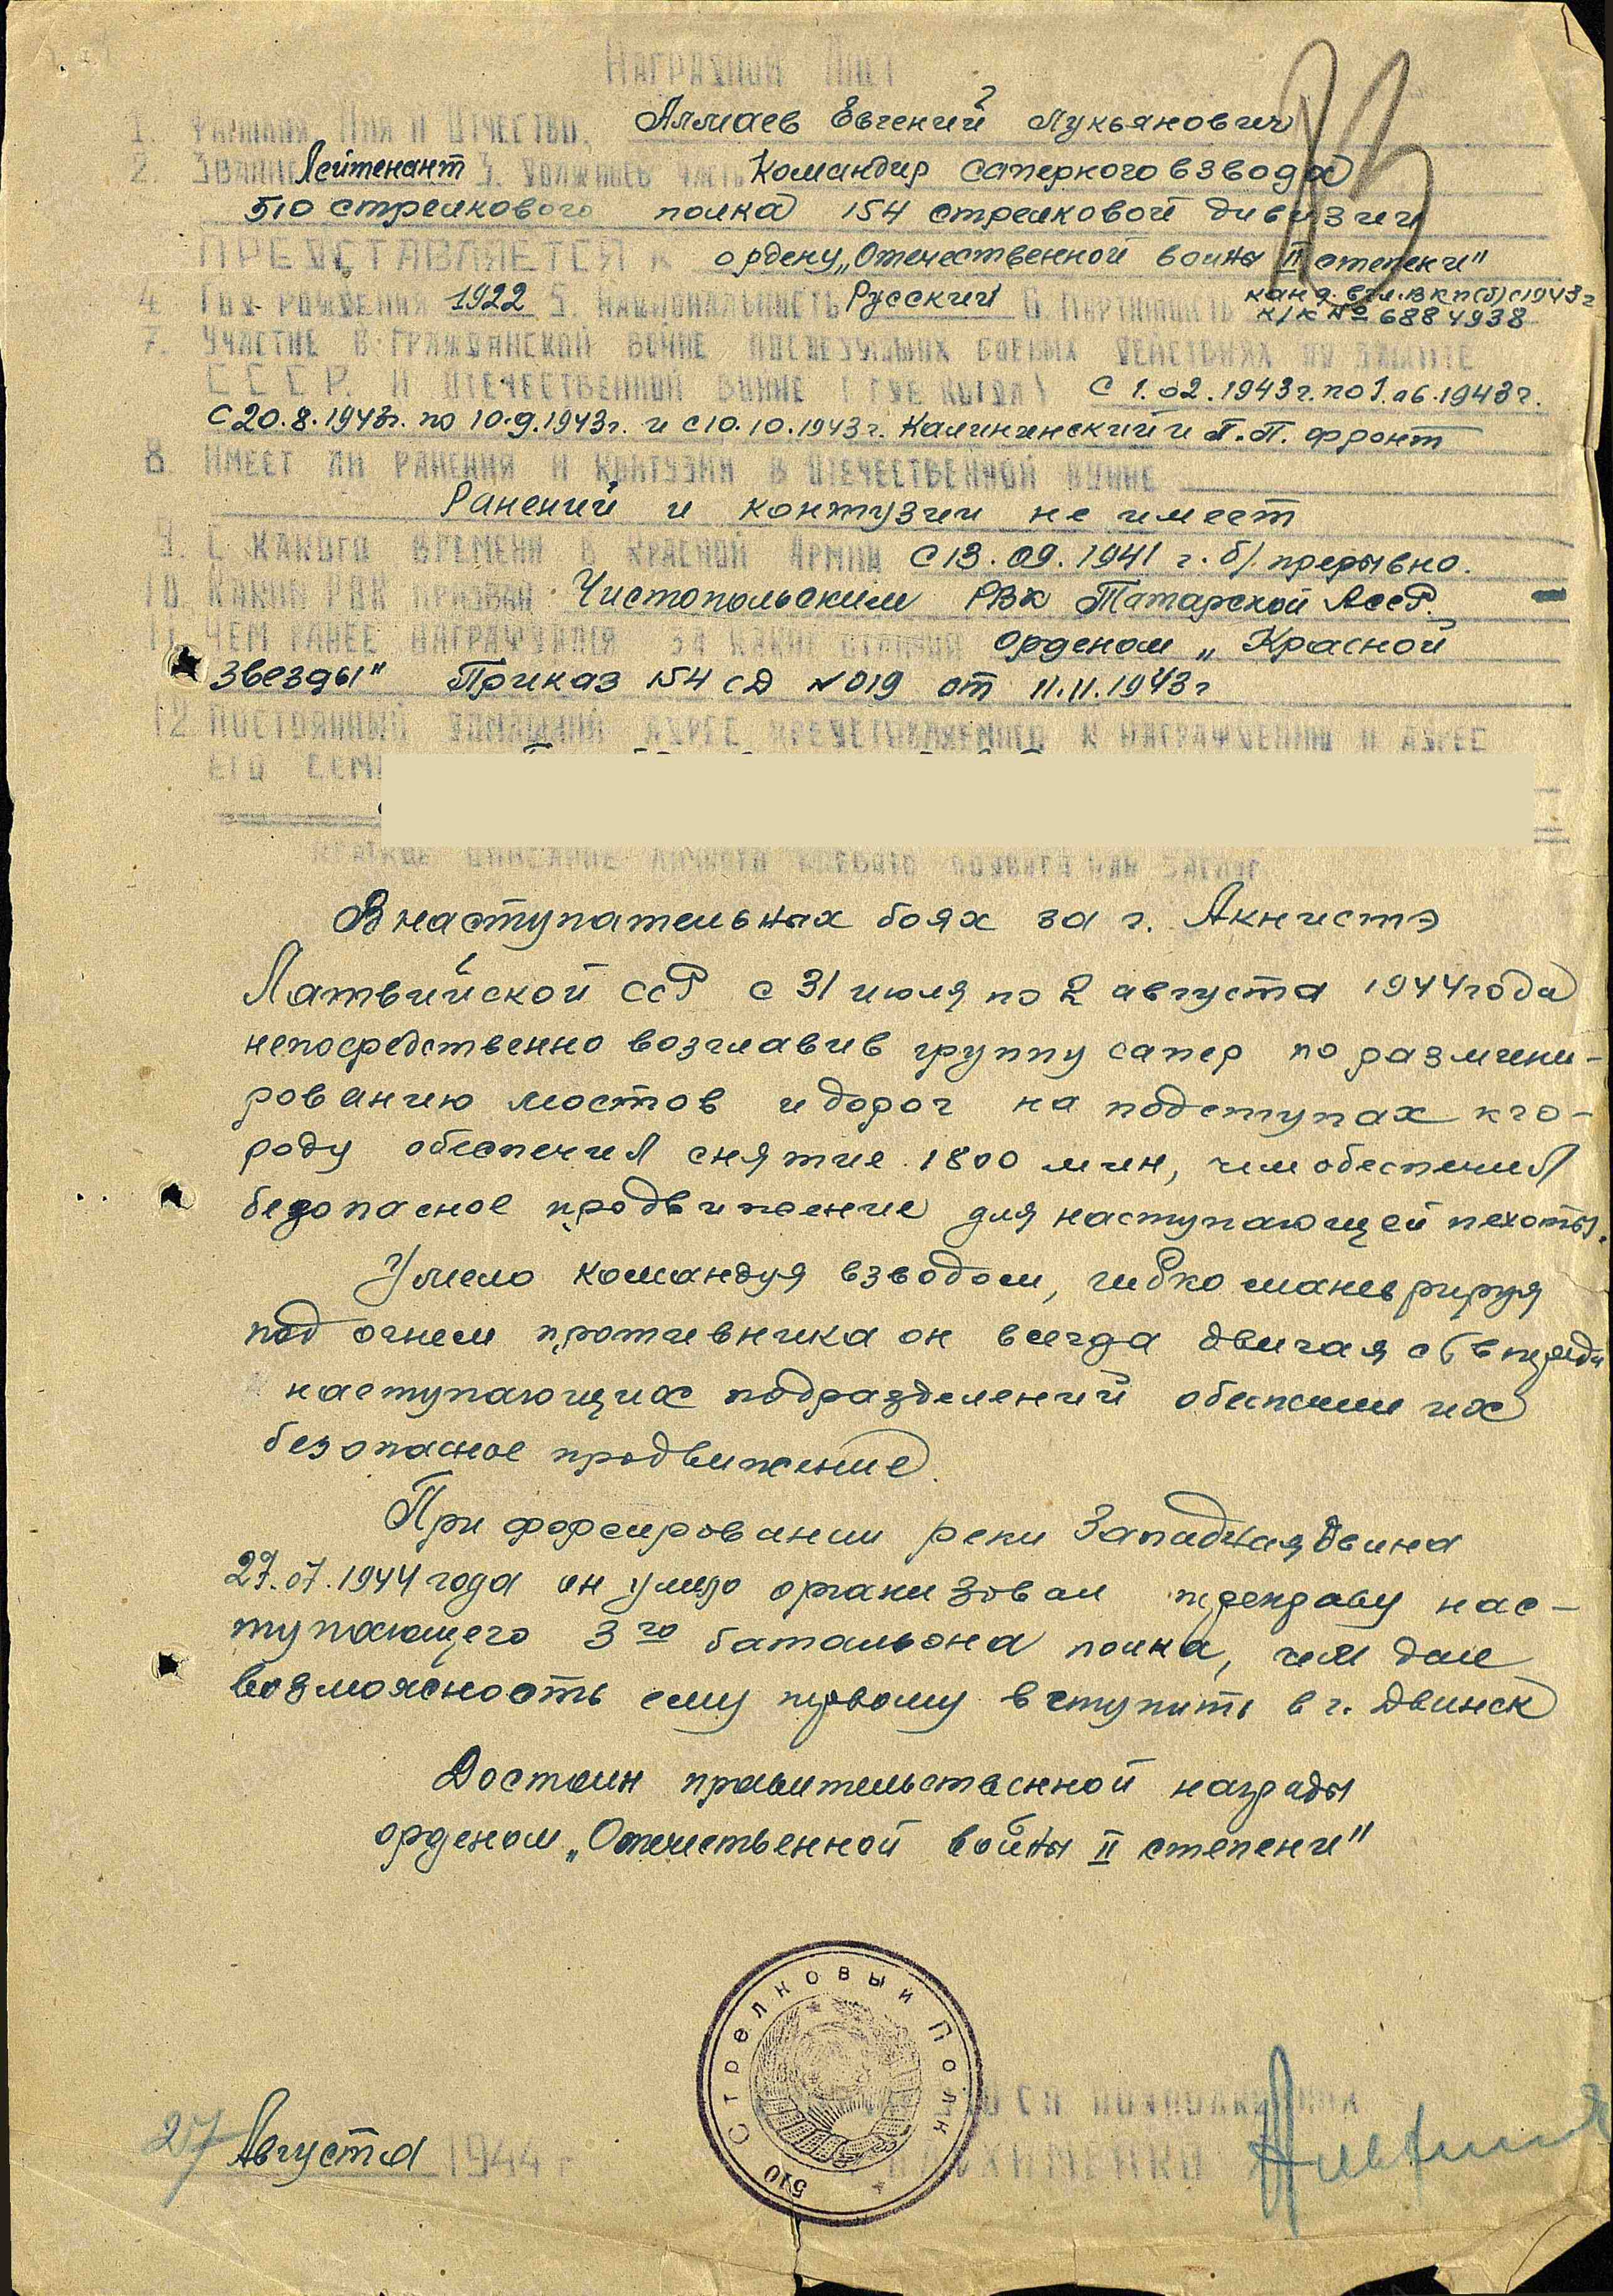 Наградной Лист
1. Фамилия, Имя и Отчество, Алмаев Евгений Лукьянович
2. Звание Лейтенант 3. Должность часть Командир саперного взвода
510 стрелкового полка 154 стрелковой дивизии
ПРЕДСТАВЛЯЕТСЯ к ордену „Отечественной войны II степени"
4. Год рождения 1922 5. Национальность Русский 6. Партийность канд. в чл. ВКП(б) с 1943 г
к/к № 6884938
7. Участие в гражданской войне последующих боевых действиях по защите
СССР. и отечественной войне (где когда) с 1.02.1943 г. по 1.06.1943 г.
С 20.8.1943 г. по 10.9.1943 г. и с 10.10.1943 г. Калининский и П.П. фронт
8. Имеет ли ранения и контузии в отечественной войне
Ранений и контузии не имеет
9. С какого времени в Красной Армии с 13.09.1941 г. б/прерывно.
10. Каким РВК призван Чистопольским РВК Татарской АССР.
11. Чем ранее награждался за какие отличия орденом „Красной
звезды" Приказ 154 СД №019 от 11.11.1943 г
12 Постоянный домашний адрес представляемого к награждению и адрес
его семьи
Краткое описание личного боевого подвига или заслуг
В наступательных боях за г. Акнистэ
Латвийской ССР с 31 июля по 2 августа 1944 года
непосредственно возглавив группу сапер по размини-
рованию мостов и дорог на подступах к го-
роду обеспечил снятие 1800 мин, чем обеспечил
безопасное продвижение для наступающей пехоты.
Умело командуя взводом, гибко маневрируя
под огнем противника он всегда двигаясь впереди
наступающих подразделений обеспечил их
безопасное продвижение.
При форсировании реки Западная Двина
27.07.1944 года он умело организовал переправу нас-
тупающего 3го батальона полка, чем дал
возможность ему первому вступить в г. Двинск
Достоин правительственной награды
орденом „Отечественной войны II степени"
510 Стрелковый Полк
27 Августа 1944 г